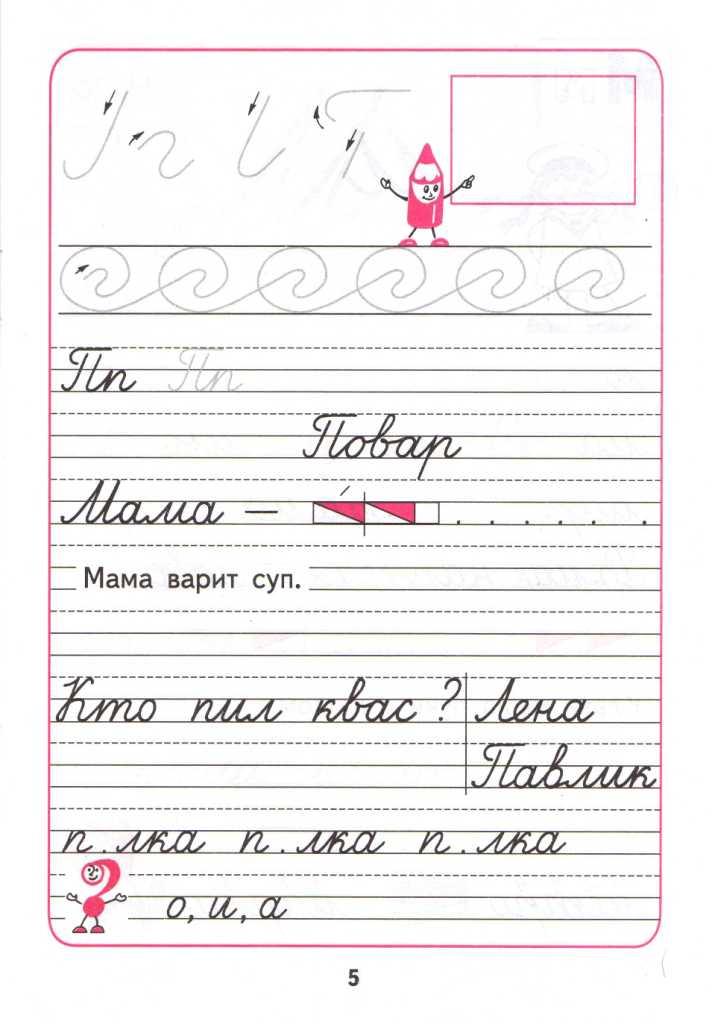 Пп Пп
Повар
Мама —
Мама варит суп.
Кто пил квас? Лена
Павлик
п.лка п.лка п.лка
о, и, а
5